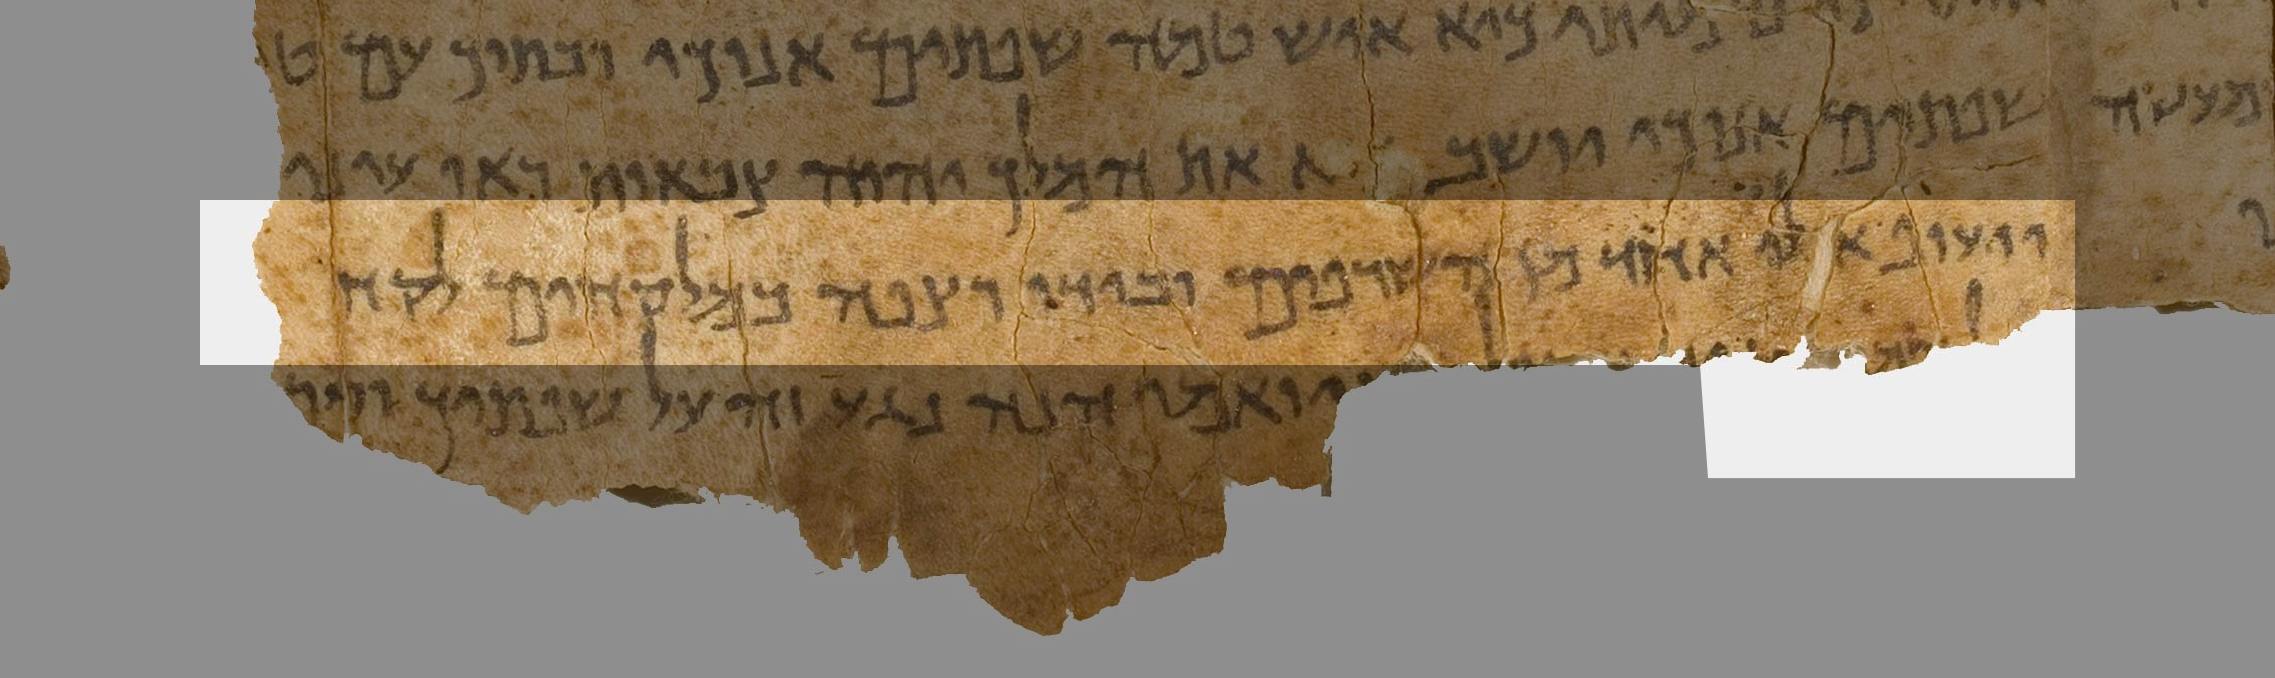 כיא איש טמה שפתים אנוכי ובתוך עם ט
מעשה שפתים אנוכי יושב את המלך יהוה צבאות ראו עיני
ויעופ אלי אחד מן השרפים ובידו רצפה במלקחים לקח
ויואמר הנה נגע זה על שפתיך וסר